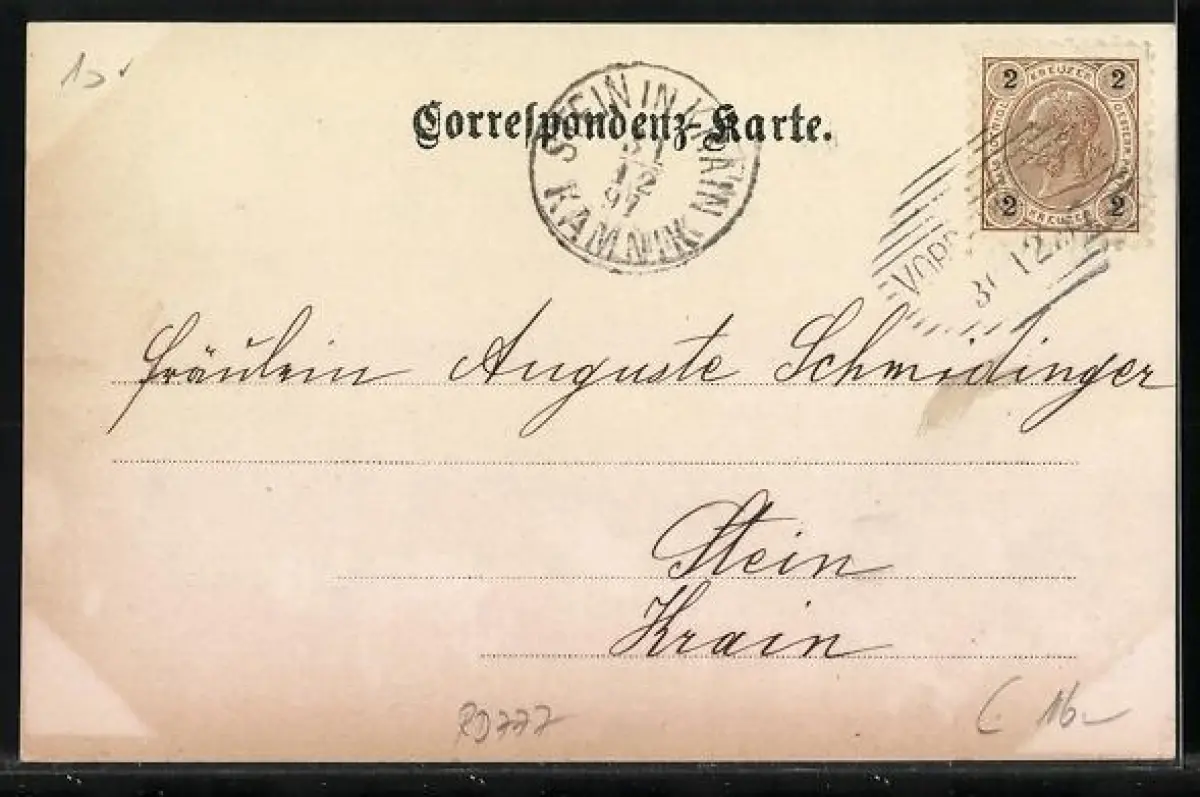 Correspondenz-Karte.
STEIN IN KRAIN
31
12
97
KAMNIK
2 KREUZER 2
2 KREUZER 2
31 12
Fräulein Auguste Schmidinger
Stein
Krain